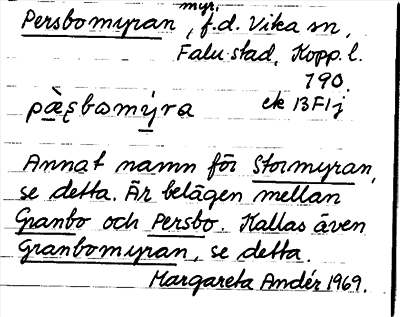 myr.
Persbomyran, f.d. Vika sn,
Falu stad, Kopp. l.
790.
pæ̀ʂbomýra ek 13F1j
Annat namn för Stormyran,
se detta. Är belägen mellan
Granbo och Persbo. Kallas även
Granbomyran, se detta.
Margareta Andér 1969.